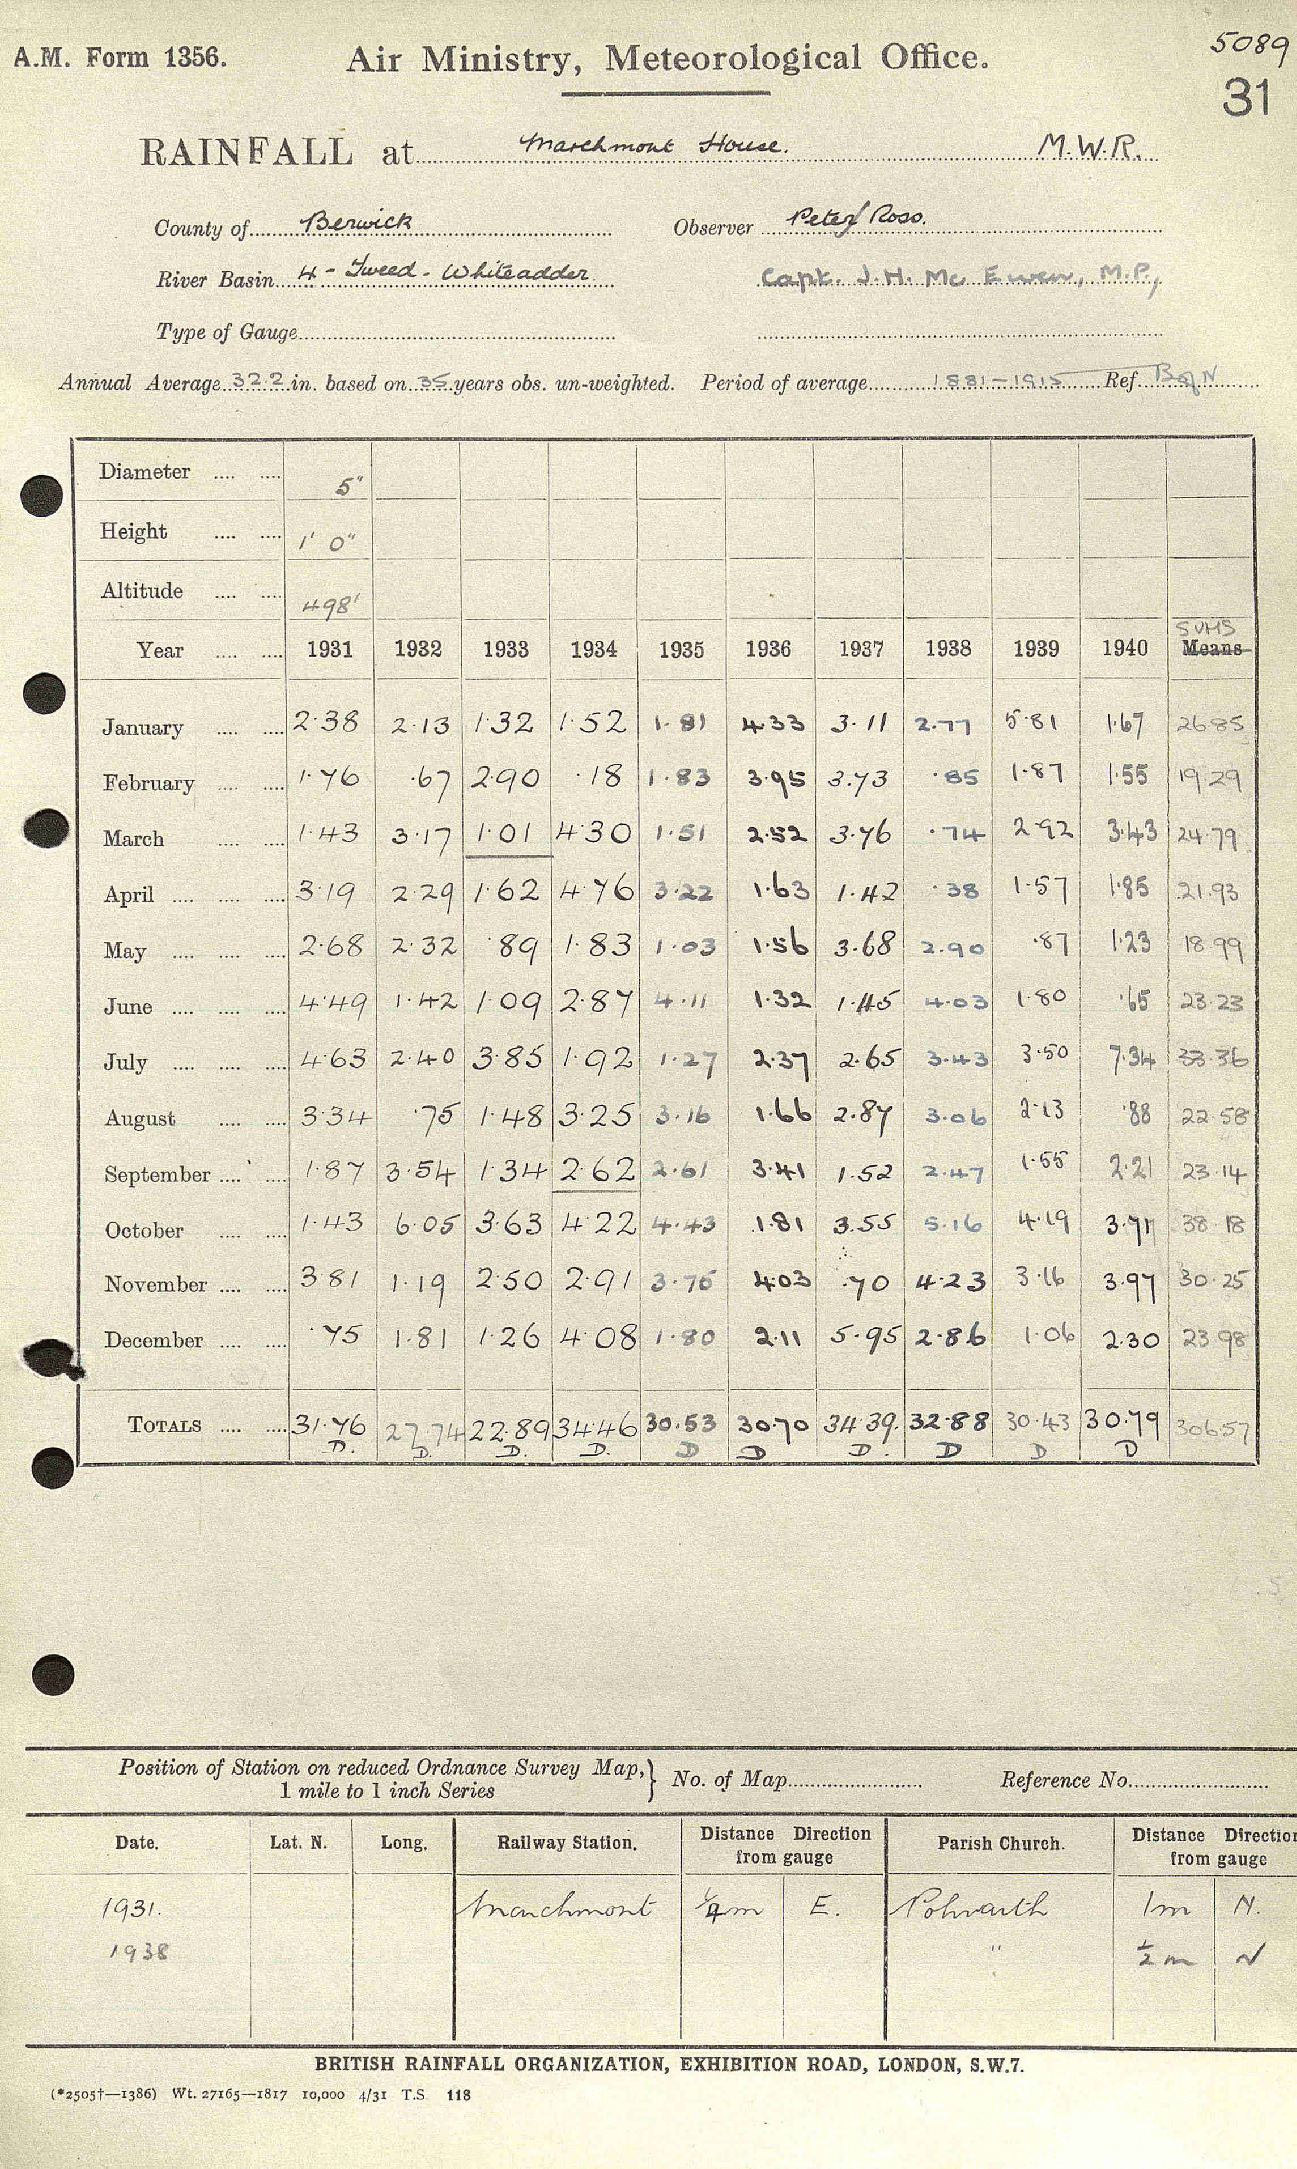 5089
A.M. Form 1356. Air Ministry, Meteorological Office.
31
RAINFALL at Marchmont House. M.W.R.
County of Berwick Observer Peter Ross.
River Basin 4 - Tweed - Whiteadder Capt. J.H. Mc Ewen, M.P.,
Type of Gauge
Annual Average 32.2 in. based on 35 years obs. un-weighted. Period of average 1881-1915 Ref. B of N
Diameter 5"
Height 1' 0"
Altitude 498'
SUMS
Year 1931 1932 1933 1934 1935 1936 1937 1938 1939 1940 Means
January 2.38 2.13 1.32 1.52 1.81 4.33 3.11 2.77 5.81 1.67 26.85
February 1.76 .67 2.90 .18 1.83 3.95 3.73 .85 1.87 1.55 19.29
March 1.43 3.17 1.01 4.30 1.51 2.52 3.76 .74 2.92 3.43 24.79
April 3.19 2.29 1.62 4.76 3.22 1.63 1.42 .38 1.57 1.85 21.93
May 2.68 2.32 .89 1.83 1.03 1.56 3.68 2.90 .87 1.23 18.99
June 4.49 1.42 1.09 2.87 4.11 1.32 1.45 4.03 1.80 .65 23.23
July 4.63 2.40 3.85 1.92 1.27 2.37 2.65 3.43 3.50 7.34 33.36
August 3.34 .75 1.48 3.25 3.16 1.66 2.87 3.06 2.13 .88 22.58
September 1.87 3.54 1.34 2.62 2.61 3.41 1.52 2.47 1.55 2.21 23.14
October 1.43 6.05 3.63 4.22 4.43 1.81 3.55 5.16 4.19 3.71 38.18
November 3.81 1.19 2.50 2.91 3.75 4.03 .70 4.23 3.16 3.97 30.25
December .75 1.81 1.26 4.08 1.80 2.11 5.95 2.86 1.06 2.30 23.98
TOTALS 31.76 27.74 22.89 34.46 30.53 30.70 34.39. 32.88 30.43 30.79 306.57
D. D. D. D. D D D. D D D
Position of Station on reduced Ordnance Survey Map, } No. of Map Reference No.
1 mile to 1 inch Series
Date. Lat. N. Long. Railway Station. Distance Direction from gauge Parish Church. Distance Direction from gauge
1931. Marchmont ¼m E. Polwarth 1m N.
1938 " ½ m N
BRITISH RAINFALL ORGANIZATION, EXHIBITION ROAD, LONDON, S.W.7.
(*2505†—1386) Wt. 27165—1817 10,000 4/31 T.S. 118